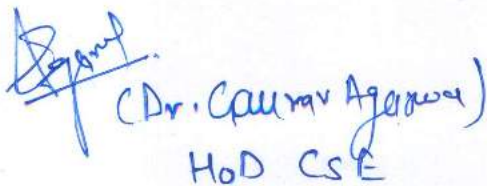 (Dr. Gaurav Agarwal)
HoD CSE